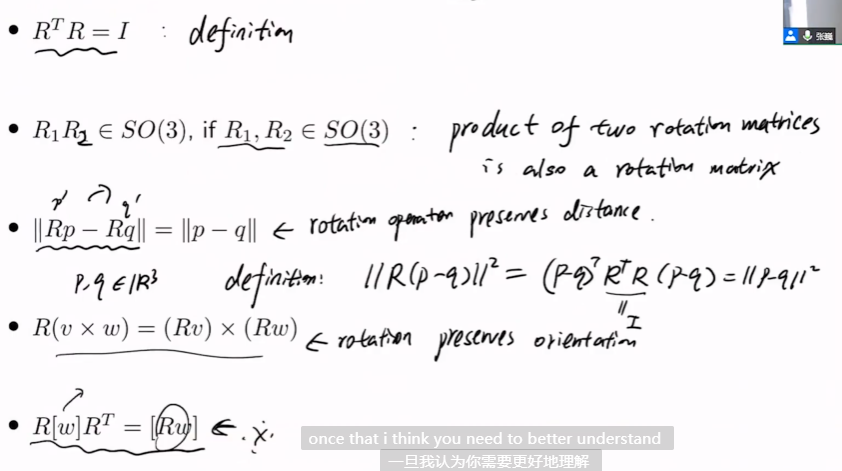 张巍
• RᵀR = I : definition
• R₁R₂ ∈ SO(3), if R₁, R₂ ∈ SO(3) : product of two rotation matrices
is also a rotation matrix
p' q'
• ‖Rp − Rq‖ = ‖p − q‖ ← rotation operator preserves distance.
p, q ∈ ℝ³ definition: ‖R(p−q)‖² = (p−q)ᵀ RᵀR (p−q) = ‖p−q‖²
I
• R(v × w) = (Rv) × (Rw) ← rotation preserves orientation
• R[w]Rᵀ = [Rw] ←
once that i think you need to better understand
一旦我认为你需要更好地理解